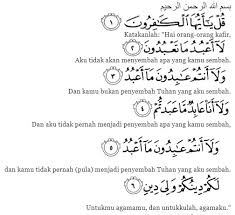 بسم الله الرحمن الرحيم
قُلْ يَٰٓأَيُّهَا ٱلْكَٰفِرُونَ ١
Katakanlah: "Hai orang-orang kafir,
لَآ أَعْبُدُ مَا تَعْبُدُونَ ٢
Aku tidak akan menyembah apa yang kamu sembah.
وَلَآ أَنتُمْ عَٰبِدُونَ مَآ أَعْبُدُ ٣
Dan kamu bukan penyembah Tuhan yang aku sembah.
وَلَآ أَنَا۠ عَابِدٌ مَّا عَبَدتُّمْ ٤
Dan aku tidak pernah menjadi penyembah apa yang kamu sembah,
وَلَآ أَنتُمْ عَٰبِدُونَ مَآ أَعْبُدُ ٥
dan kamu tidak pernah (pula) menjadi penyembah Tuhan yang aku sembah.
لَكُمْ دِينُكُمْ وَلِيَ دِينِ ٦
Untukmu agamamu, dan untukkulah, agamaku."